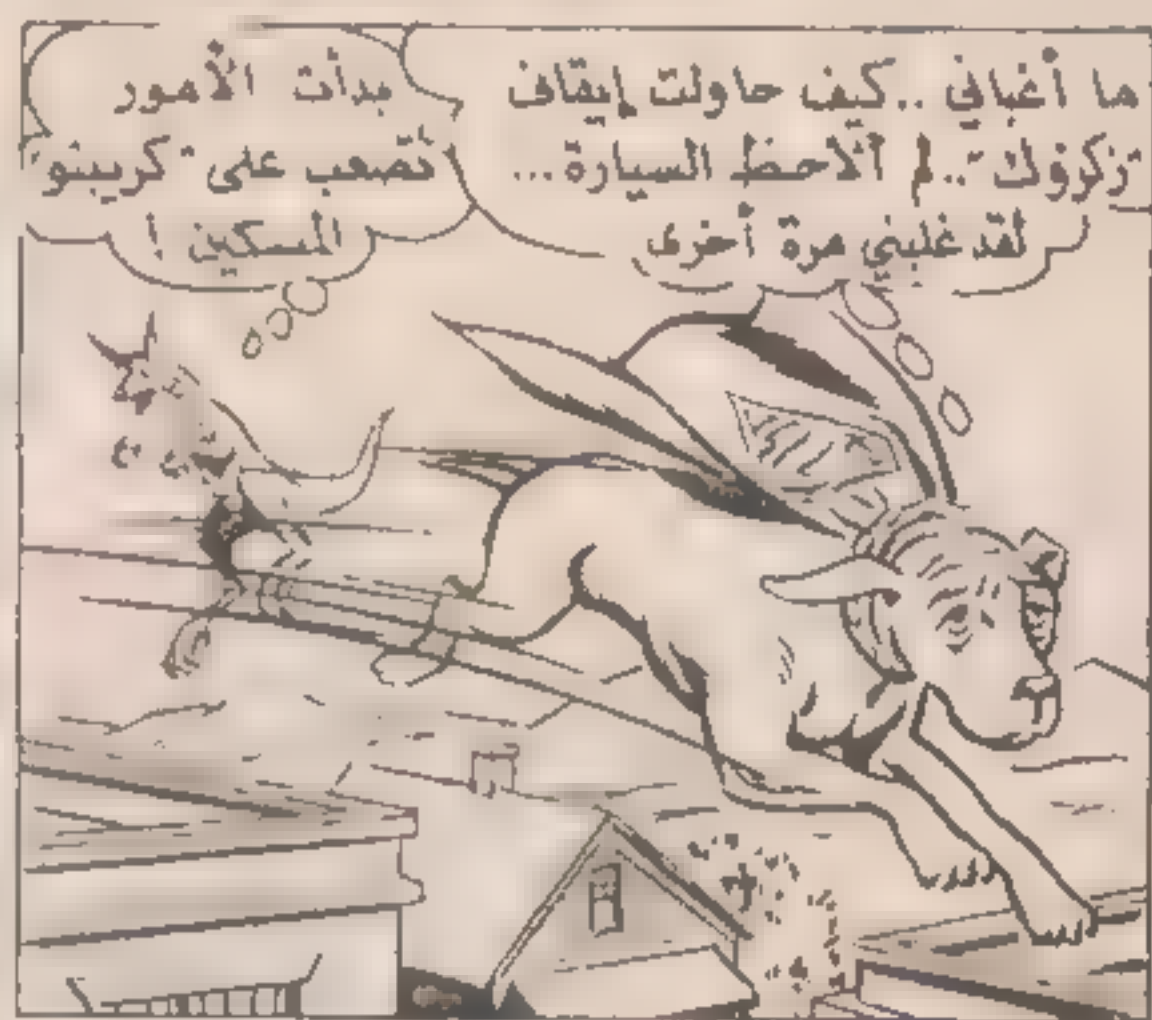 ما أغباني .. كيف حاولت إيقاف
"زكزوك" .. لم ألاحظ السيارة ...
لقد غلبني مرة أخرى
بدأت الأمور
تصعب على "كريبنو"
المسكين !